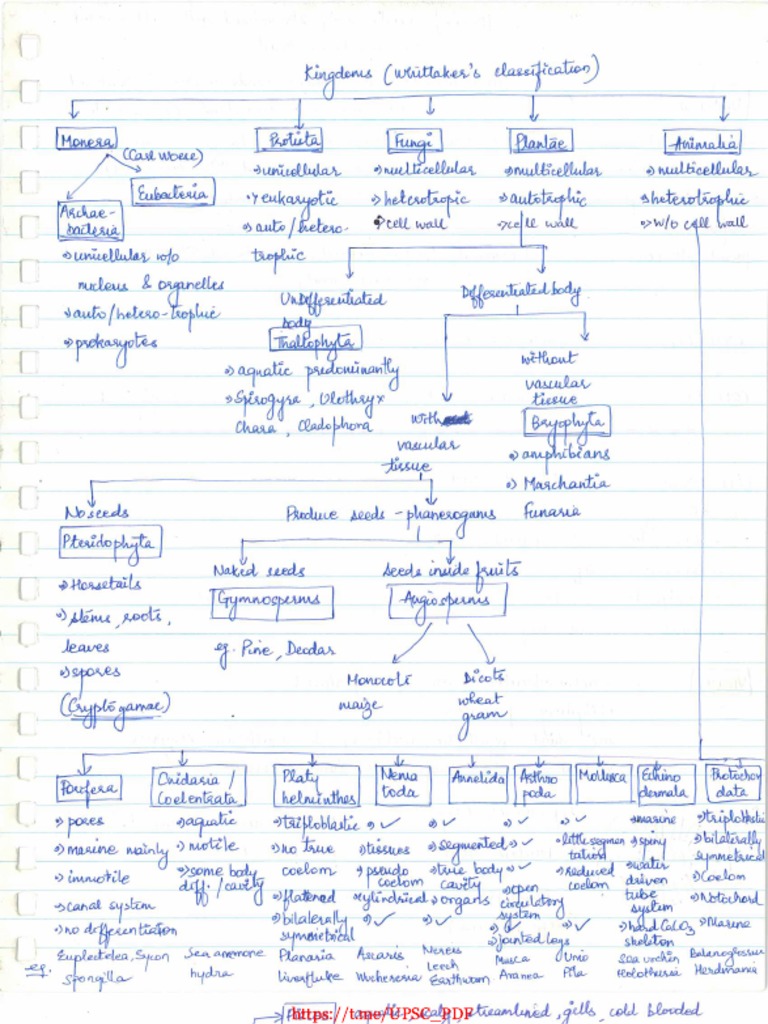 Kingdoms (Whittaker's classification)
Monera
Protista
Fungi
Plantae
Animalia
(Carl Woese)
Eubacteria
Archae-
bacteria
→ unicellular w/o
nucleus & organelles
→ auto/hetero-trophic
→ prokaryotes
→ unicellular
→ eukaryotic
→ auto/hetero-
trophic
→ multicellular
→ heterotropic
→ cell wall
→ multicellular
→ autotrophic
→ cell wall
→ multicellular
→ heterotrophic
→ w/o cell wall
Undifferentiated
body
Thallophyta
→ aquatic predominantly
→ Spirogyra, Ulothryx
Chara, Cladophora
Differentiated body
with
vascular
tissue
without
vascular
tissue
Bryophyta
→ amphibians
→ Marchantia
Funaria
No seeds
Pteridophyta
→ Horsetails
→ stems, roots,
leaves
→ spores
(Cryptogamae)
Produce seeds - phanerogams
Naked seeds
Gymnosperms
eg. Pine, Deodar
Seeds inside fruits
Angiosperms
Monocots
maize
Dicots
wheat
gram
Porifera
→ pores
→ marine mainly
→ immotile
→ canal system
→ no differentiation
eg. Euplectelea, Sycon
Spongilla
Cnidaria /
Coelentrata
→ aquatic
→ motile
→ some body
diff./cavity
Sea anemone
hydra
Platy
helminthes
→ triploblastic
→ no true
coelom
→ flatened
→ bilaterally
symmetrical
Planaria
Liverfluke
Nema
toda
→ ✓
→ tissues
→ pseudo
coelom
→ cylindrical
→ ✓
Ascaris
Wuchereria
Annelida
→ ✓
→ segmented
→ true body
cavity
→ organs
→ ✓
Nereis
Leech
Earthworm
Arthro
poda
→ ✓
→ ✓
→ ✓
→ open
circulatory
system
→ ✓
→ jointed legs
Musca
Aranea
Mollusca
→ ✓
→ little segmen
tation
→ reduced
coelom
→ ✓
Unio
Pila
Echino
dermata
→ marine
→ spiny
→ water
driven
tube
system
→ hard CaCO3
skeleton
Sea urchin
Holothuria
Protochor
data
→ triploblastic
→ bilaterally
symmetrical
→ Coelom
→ Notochord
→ Marine
Balanoglossus
Herdmania
https://t.me/UPSC_PDF
streamlined, gills, cold blooded